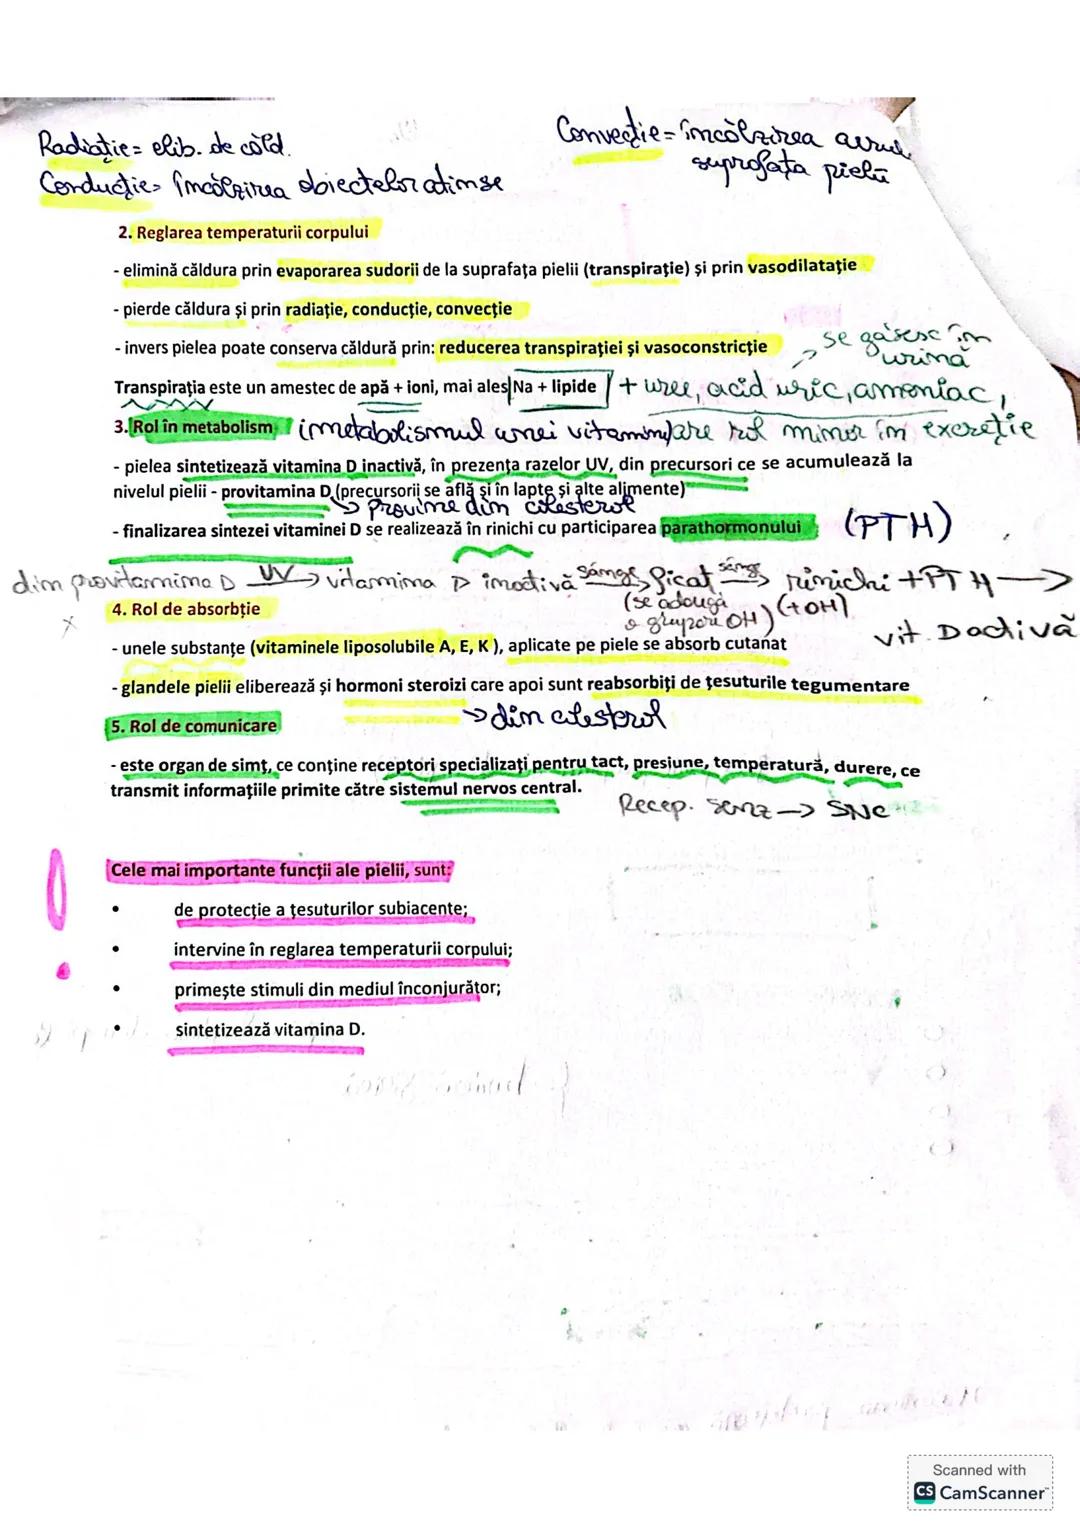 Radiație = elib. de căld.
Conducție = încălzirea obiectelor atinse
Convecție = încălzirea
suprafața pielii
2. Reglarea temperaturii corpului
- elimină căldura prin evaporarea sudorii de la suprafața pielii (transpirație) și prin vasodilatație
- pierde căldura și prin radiație, conducție, convecție
- invers pielea poate conserva căldură prin: reducerea transpirației și vasoconstricție
se găsesc în
urină
Transpirația este un amestec de apă + ioni, mai ales Na + lipide + uree, acid uric, amoniac,
3. Rol în metabolism (metabolismul unei vitamin) are rol minor în excreție
- pielea sintetizează vitamina D inactivă, în prezența razelor UV, din precursori ce se acumulează la
nivelul pielii - provitamina D (precursorii se află și în lapte și alte alimente)
→ provine din colesterol
- finalizarea sintezei vitaminei D se realizează în rinichi cu participarea parathormonului (PTH)
din provitamina D UV→ vitamina D inactivă sânge→ ficat sânge→ rinichi + PTH →
(se adaugă
o grupare OH) (+OH)
vit. D activă
4. Rol de absorbție
- unele substanțe (vitaminele liposolubile A, E, K ), aplicate pe piele se absorb cutanat
- glandele pielii eliberează și hormoni steroizi care apoi sunt reabsorbiți de țesuturile tegumentare
→ din colesterol
5. Rol de comunicare
- este organ de simț, ce conține receptori specializați pentru tact, presiune, temperatură, durere, ce
transmit informațiile primite către sistemul nervos central.
Recep. senz → SNC
Cele mai importante funcții ale pielii, sunt:
• de protecție a țesuturilor subiacente;
• intervine în reglarea temperaturii corpului;
• primește stimuli din mediul înconjurător;
• sintetizează vitamina D.
Scanned with
CS CamScanner